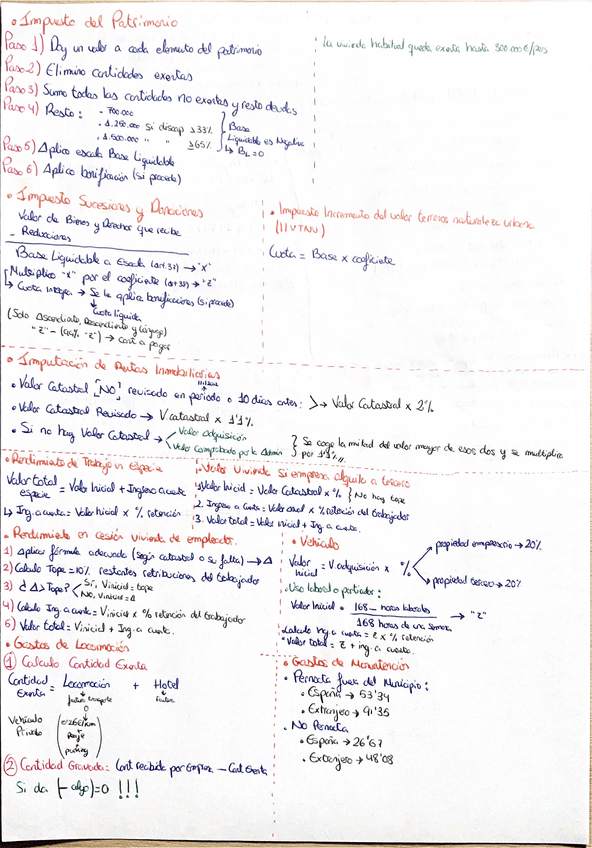 • Impuesto del Patrimonio
Paso 1) Doy un valor a cada elemento del patrimonio
Paso 2) Elimino cantidades exentas
Paso 3) Sumo todas las cantidades no exentas y resto deudas
Paso 4) Resto: • 700.000
• 1.250.000 si discap ≥33%
• 1.500.000 " " ≥65%
Base Liquidable es Negativa
↳ BL = 0
Paso 5) Aplico escala Base Liquidable
Paso 6) Aplico bonificación (si procede)
La vivienda habitual queda exenta hasta 300.000€/pers
• Impuesto Sucesiones y Donaciones
Valor de Bienes y Derechos que recibe
- Reducciones
Base Liquidable a Escala (art.37) → "X"
Multiplico "X" por el coeficiente (art 39) → "Z"
↳ Cuota íntegra → Se le aplica bonificaciones (si procede)
↓
Cuota líquida
(Solo Ascendiente, Descendiente y Cónyuge)
"Z" - (99% "Z") → cant a pagar
• Impuesto Incremento del valor terrenos naturaleza urbana
(IIVTNU)
Cuota = Base x coeficiente
• Imputación de Rentas Inmobiliarias
• Valor Catastral [NO] revisado en periodo o 10 días antes: → Valor Catastral x 2%
• Valor Catastral Revisado → V catastral x 1'1%
• Si no hay Valor Catastral → Valor Adquisición
Valor Comprobado por la Admin
Se coge la mitad del valor mayor de esos dos y se multiplica
por 1'1%
• Rendimiento de Trabajo en Especie
Valor total especie = Valor Inicial + Ingreso a cuenta
↳ Ing. a cuenta = Valor Inicial x % retención
• Valor Vivienda si empresa alquila a tercero
1. Valor Inicial = Valor Catastral x % } No hay tope
2. Ingreso a Cuenta = Valor Inicial x % retención del trabajador
3. Valor total = Valor Inicial + Ing. a cuenta.
• Rendimiento en cesión vivienda de empleador.
1) Aplicar fórmula adecuada (según catastral o se falta) → Δ
2) Calculo Tope = 10% restantes retribuciones del trabajador
3) ¿Δ > Tope? Si, V.inicial = tope
No, V.inicial = Δ
4) Calculo Ing. a cuenta = V.inicial x % retención del trabajador
5) Valor total = V.inicial + Ing. a cuenta.
• Vehículo
Valor Inicial = V. adquisición x %
propiedad empresario → 20%
propiedad tercero → 20%
• Uso laboral o particular:
Valor Inicial • 168 - horas laborales
168 horas de una semana
→ "Z"
• Calculo Ing. a cuenta = Z x % retención
• Valor total = Z + ing. a cuenta.
• Gastos de Locomoción
① Calculo Cantidad Exenta
Cantidad Exenta = Locomoción + Hotel
factura transporte
factura
o
Vehículo Privado
0'26€/km
peaje
parking
② Cantidad Gravada = Cant recibida por Empresa - Cant Exenta
Si da (- algo) = 0 !!!
• Gastos de Manutención
• Pernocta fuera del Municipio:
• España → 53'34
• Extranjero → 91'35
• No Pernocta
• España → 26'67
• Extranjero → 48'08